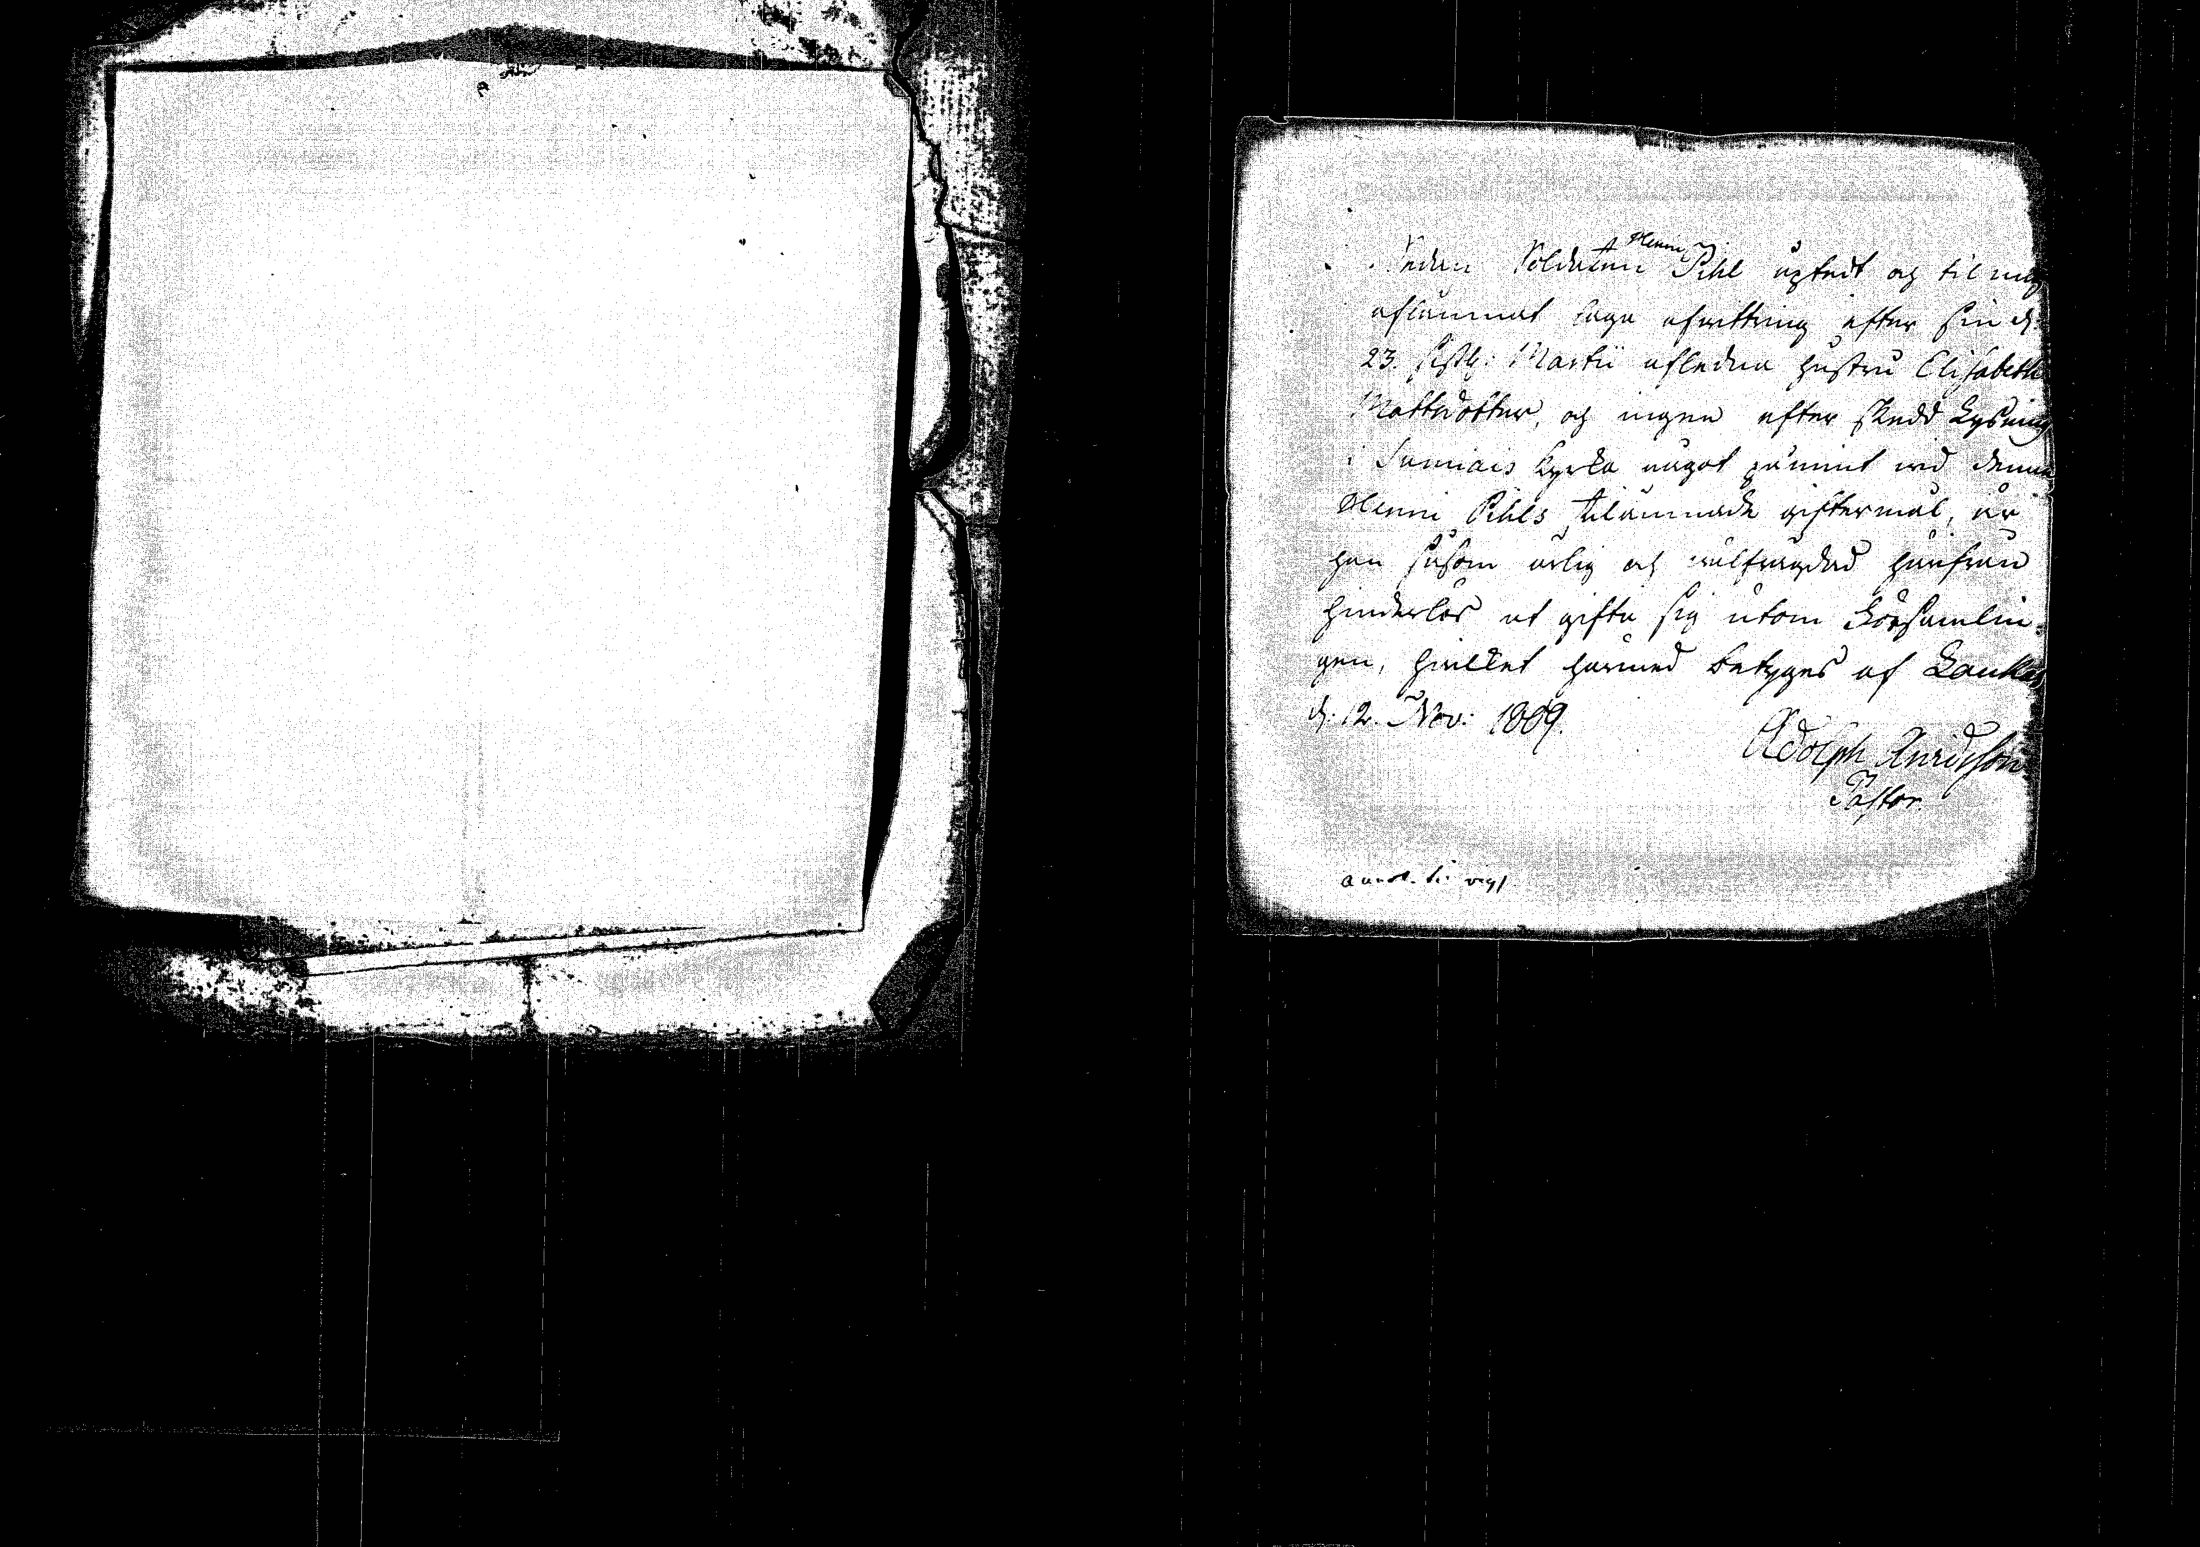 Sedan Soldaten Henric Pihl uptedt och til mig
aflämnat laga afvittring efter sin d:
23. sistl: Martii afledna hustru Elisabeth
Mattsdotter, och ingen efter skedd Lysning
i Sumiais kyrka något påmint vid denna
Henric Pihls tilämnade giftermål, är
han såsom ärlig och välfrägdad härifrån
hinderlös at gifta sig utom Församlin-
gen, hvilket härmed betyges af Laukas
d: 12. Nov: 1809.
Adolph
Pastor